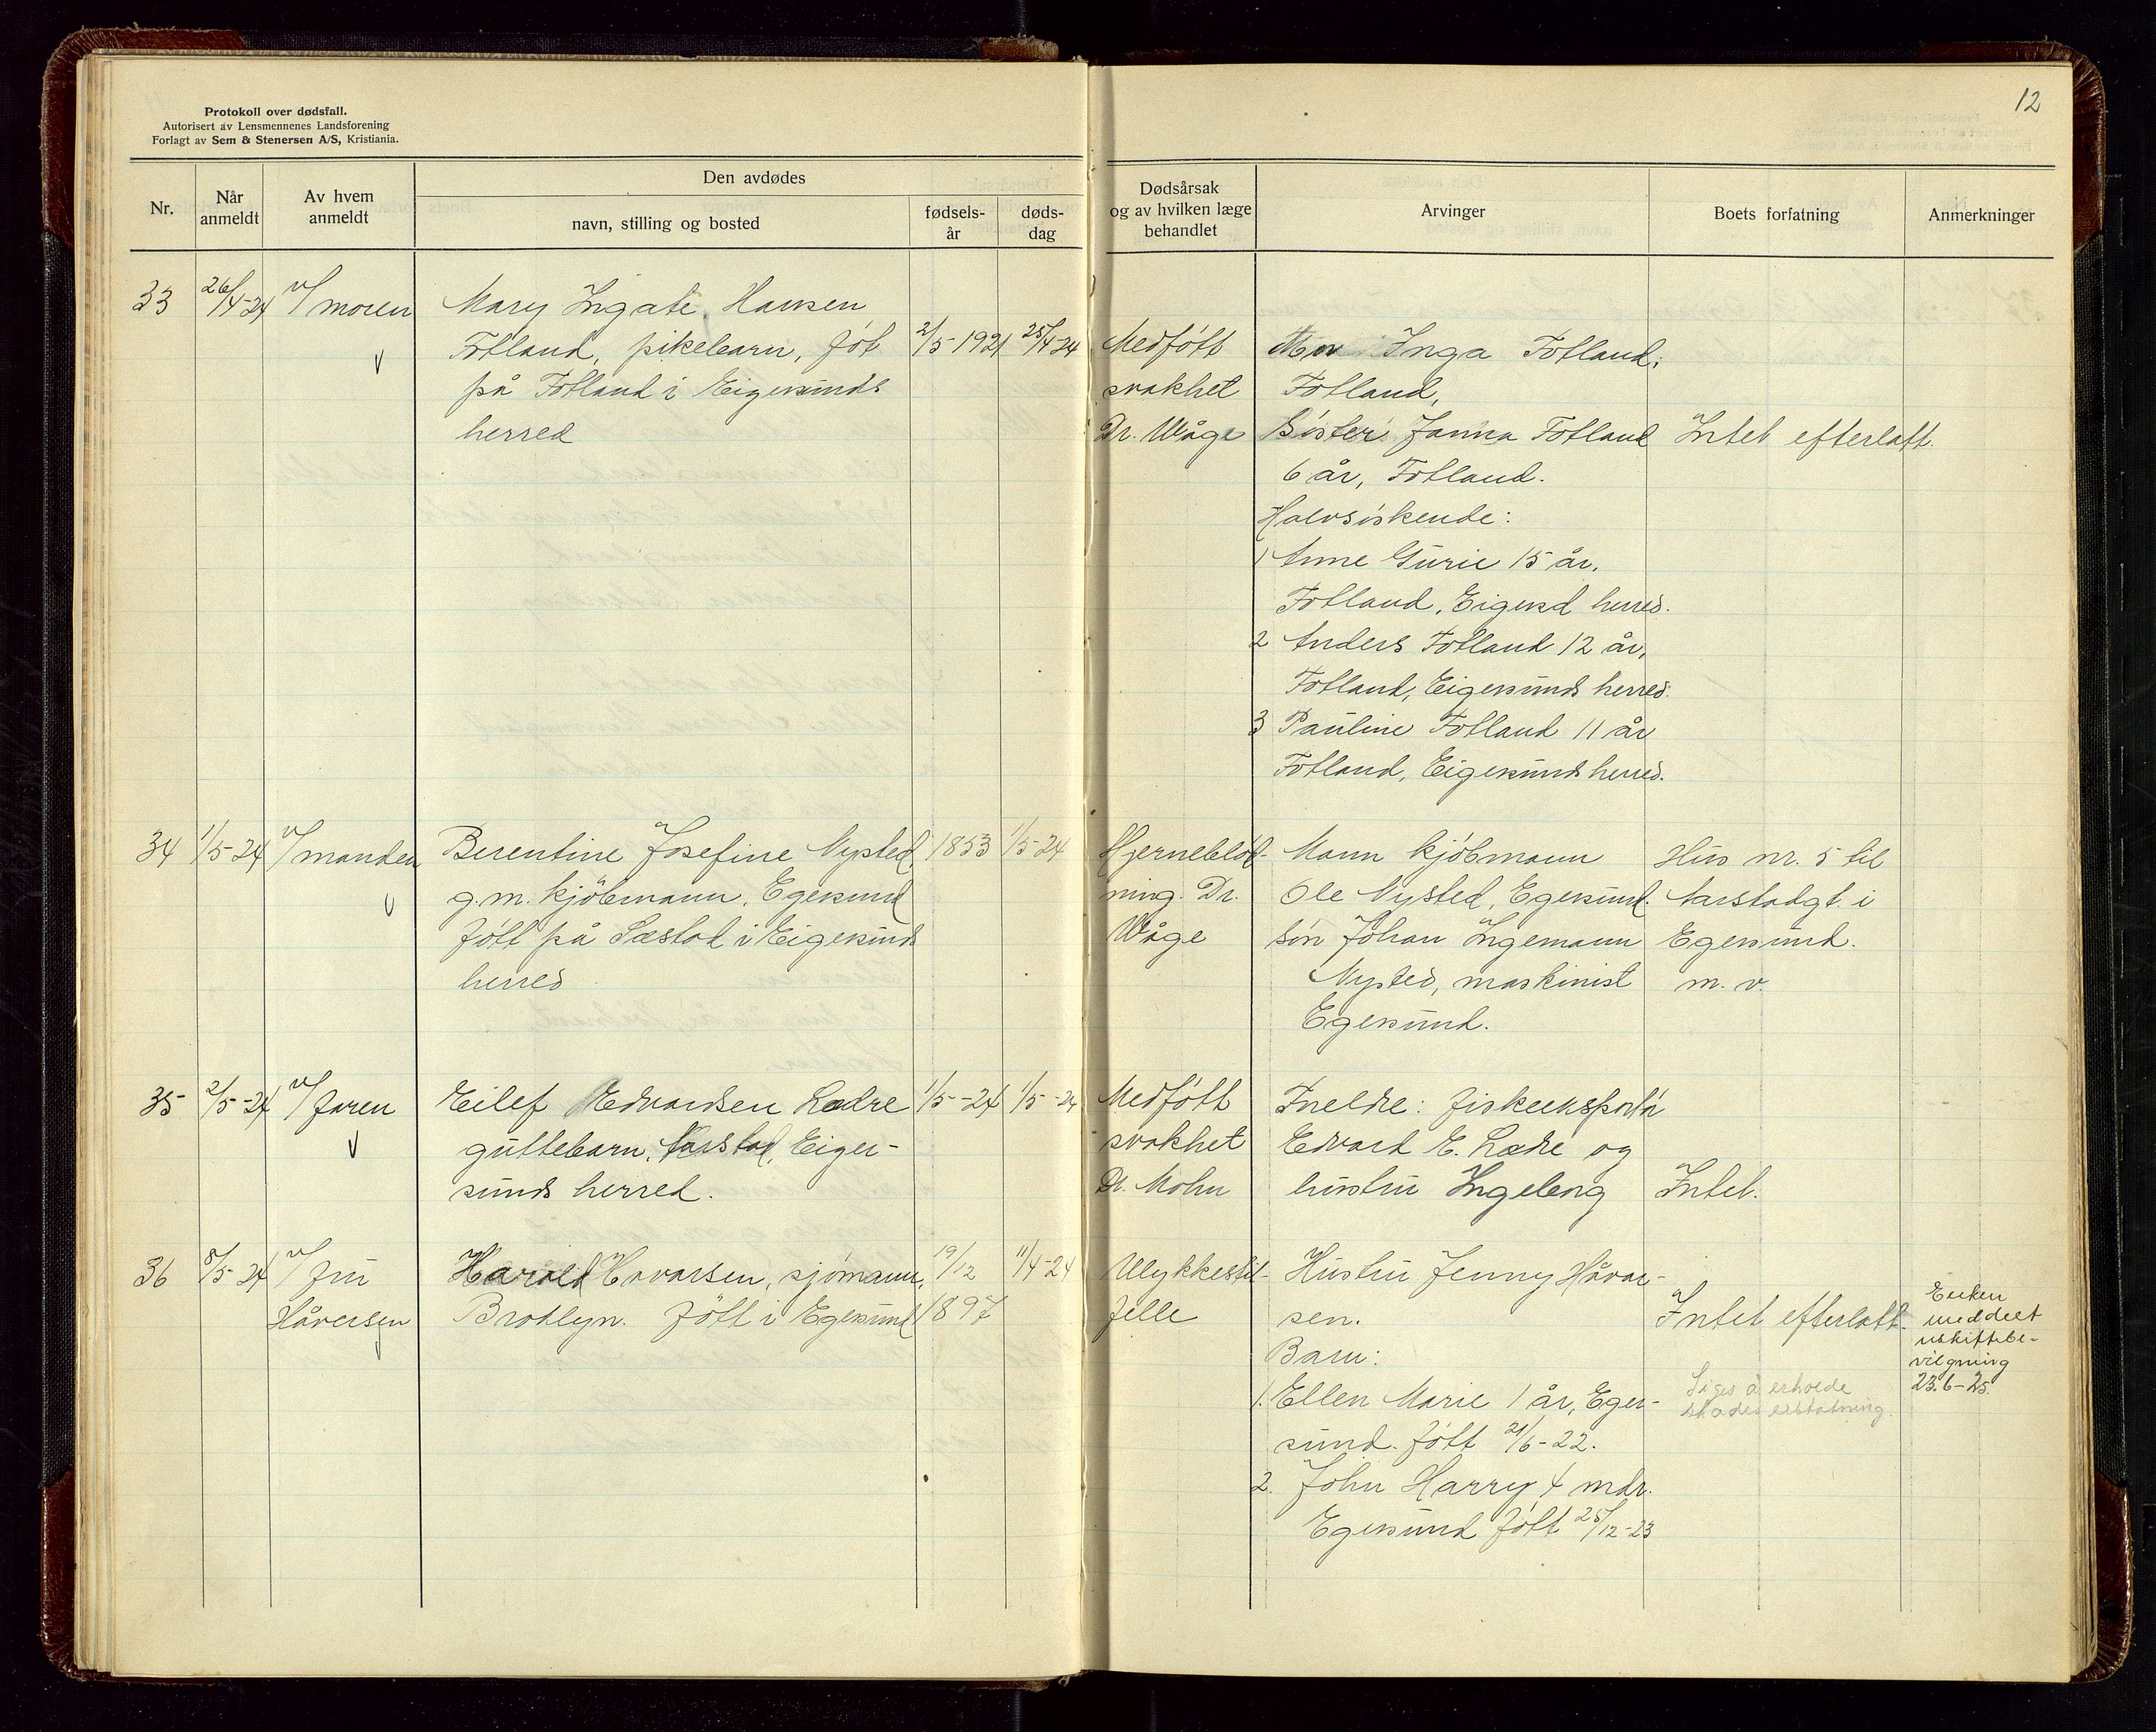 12
Protokoll over dødsfall.
Autorisert av Lensmennenes Landsforening
Forlagt av Sem & Stenersen A/S, Kristiania.
Nr.
Når anmeldt
Av hvem anmeldt
Den avdødes
navn, stilling og bosted
fødsels-år
døds-dag
Dødsårsak og av hvilken læge behandlet
Arvinger
Boets forfatning
Anmerkninger
33 26/4-24 v/ moren
Mary Ingate Hansen
Fotland, pikebarn, føt 2/5-1921 25/4-24
på Fotland i Eigersunds
herred
Medføtt
svakhet
Dr. Wåge
Mor Inga Fotland,
Fotland,
Søster: Janna Fotland
6 år, Fotland.
Halvsøskende:
1 Anne Gurie 15 år,
Fotland, Eigersd herred.
2 Anders Fotland 12 år,
Fotland, Eigersunds herred.
3 Pauline Fotland 11 år
Fotland, Eigersunds herred.
Intet efterlatt.
34 1/5-24 v/ manden
Berentine Josefine Nysted 1853 1/5-24
g.m. kjöbmann, Egersund
føtt på Sæstad i Eigersunds
herred
Hjerneblød-
ning. Dr.
Wåge
Mann kjöbmann
Ole Nysted, Egersund.
Søn Johan Ingemann
Nysted, maskinist
Egersund.
Hus nr. 5 til
Aarstadgt. i
Egersund.
m. v.
35 2/5-24 v/ faren
Eilef Edvardsen Lædre 1/5-24 1/5-24
guttebarn, Aarstad, Eiger-
sunds herred.
Medføtt
svakhet
Dr. Mohn
Foreldre: fiskeeksportør
Edvard E. Lædre og
hustru Ingeborg
Intet.
36 8/5-24 v/ fru
Håversen
Harold Havarsen, sjømann, 19/12 11/4-24
Broklyn. føtt i Egersund 1897
Ulykkestil-
felle
Hustru Jenny Håvar-
sen.
Barn:
1. Ellen Marie 1 år, Eger-
sund. føtt 21/6-22.
2. John Harry 4 mdr.
Egersund føtt 25/12-23
Intet efterlatt.
Siges å erholde
skadeserstatning.
Enken
meddelt
uskiftebe-
vilgning
23.6-25.